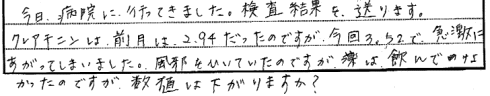 今日、病院に行ってきました。検査結果を、送ります。
クレアチニンは、前月は、2.94だったのですが、今回3.52で、急激に
あがってしまいました。風邪をひいていたのですが、薬は、飲んでのけな
かったのですが、数値は下がりますか?